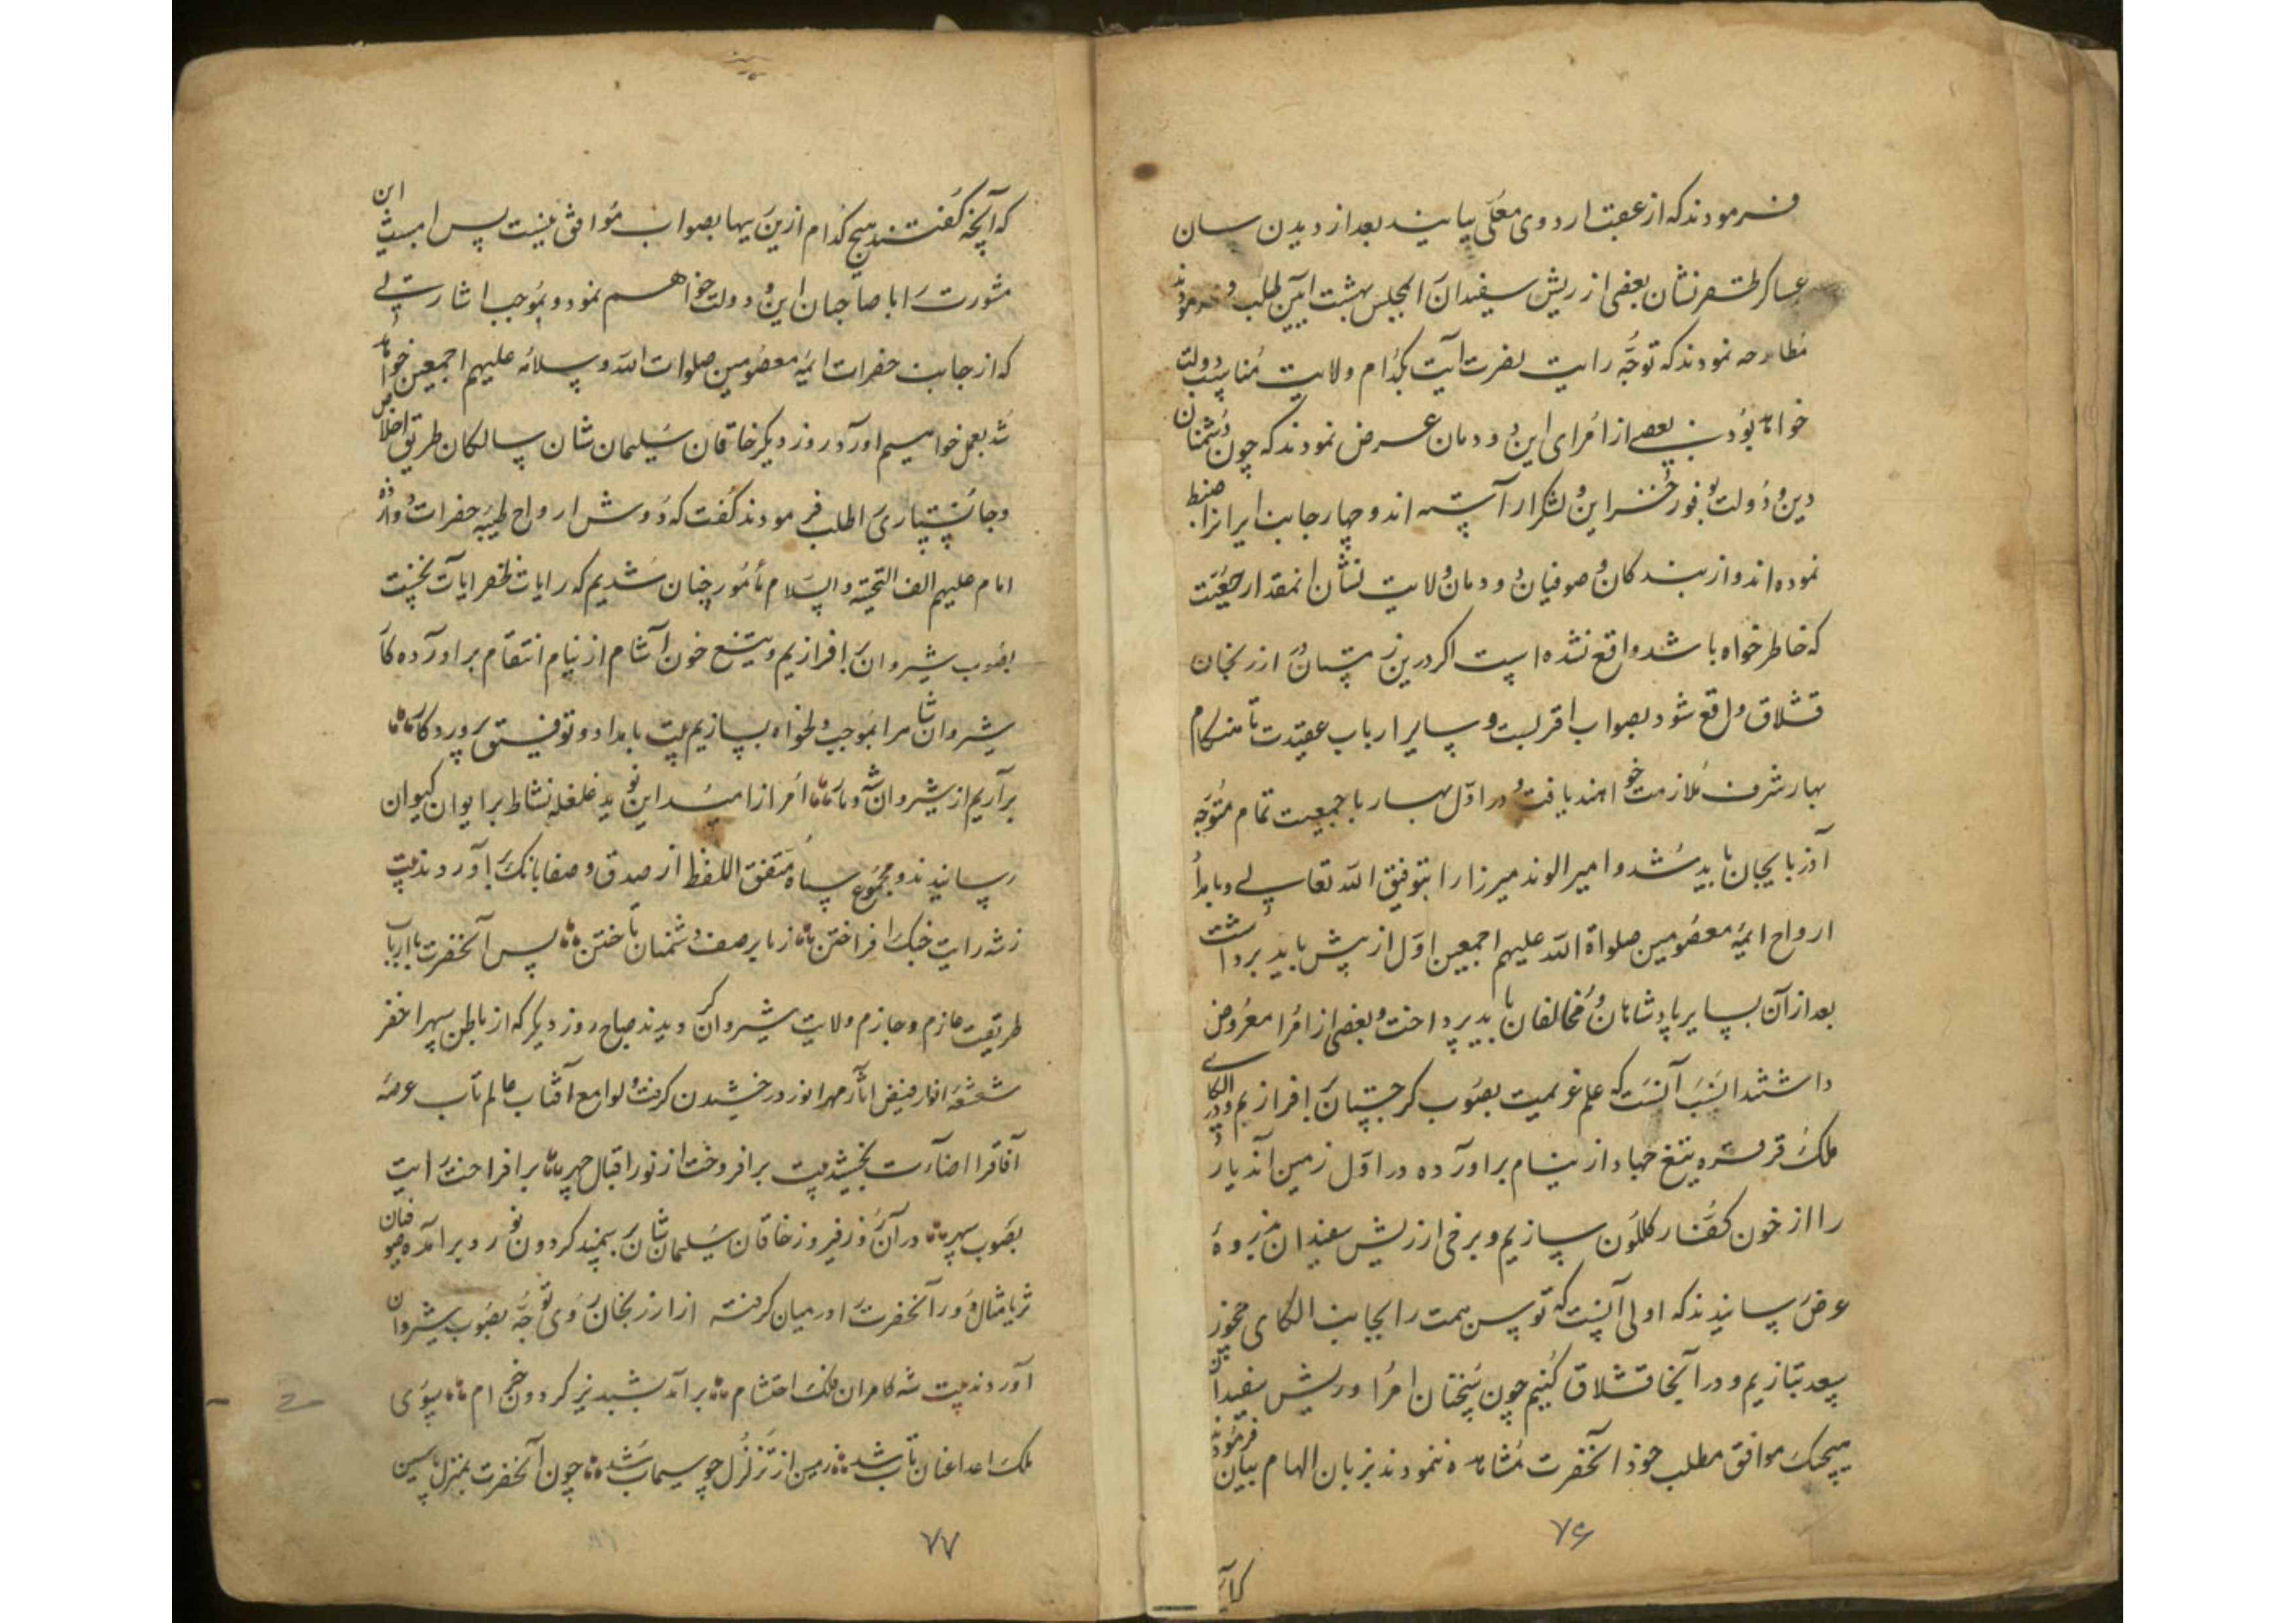 فرمودند که از عقب اردوی معلی بیایند بعد از دیدن سان
عساکر ظفر نشان بعضی از ریش سفیدان را بمجلس بهشت آیین طلب فرمودند
مطارحه نمودند که توجه رایت نصرت آیت بکدام ولایت مناسب دولت
خواهد بود بعضی از امرای این دودمان عرض نمودند که چون دشمنان
دین و دولت بوفور خشر این و لشکر آراسته اند و چهار جانب ایرانرا ضبط
نموده اند و از بندکان و صوفیان دودمان ولایت نشان انمقدار جمعیت
که خاطر خواه باشد واقع نشده است اکر درین زمستان در ارزنجان
قشلاق واقع شود بصواب اقربست و سایر ارباب عقیدت تا هنکام
بهار شرف ملازمت خواهند یافت و در اول بهار با جمعیت تمام متوجه
آذربایجان باید شد و امیر الوند میرزا را بتوفیق الله تعالی و بامداد
ارواح ایمهٔ معصومین صلواة الله علیهم اجمعین اول از پیش باید برداشت
بعد از آن بسایر پادشاهان و مخالفان باید پرداخت و بعضی از امرا معروض
داشتند انسب آنست که علم عزیمت بصوب کرجستان برافرازیم و در الکای
ملک قرقره تیغ جهاد از نیام براورده در اول زمین آندیار
را از خون کفار کلکون سازیم و برخی از ریش سفیدان بذروهٔ
عرض رسانیدند که اولی آنست که توسن همت را بجانب الکای مخور
سعد بتازیم و در آنجا قشلاق کنیم چون سخنان امرا و ریش سفیدان
هیچیک موافق مطلب خود آنحضرت مشاهده ننمودند بزبان الهام بیان فرمودند
۷۶
که آنچه کفتند هیچ کدام ازین رایها بصواب موافق نیست پس امشب این
مشورت را با صاحبان این دولت خواهم نمود و بموجب اشارتی
که از جانب حضرات ایمهٔ معصومین صلوات الله و سلامه علیهم اجمعین خواهد
شد بعمل خواهیم اورد روز دیکر خاقان سلیمان شان سالکان طریق اخلاص
و جانسپاری را طلب فرمودند کفت که دوش از ارواح طیبهٔ حضرات دوازده
امام علیهم الف التحیة و السلام مأمور چنان شدیم که رایات ظفر آیات نخست
بصوب شیروان برافرازیم و تیغ خون آشام از نیام انتقام براورده کار
شیروانشاه را بموجب دلخواه بسازیم بیت بامداد و توفیق پروردکار
برآریم از شیروان شه دمار امرا از امید این نوید غلغله نشاط بر ایوان کیوان
رسانیدند و مجموع سپاه متفق اللفظ از صدق و صفا بانک براوردند بیت
ز شه رایت جنک افراختن ز ما بر صف دشمنان تاختن پس آنحضرت با ارباب
طریقت عازم و جازم ولایت شیروان کردیدند صباح روز دیکر که از باطن سپهر اخضر
شعشعهٔ انوار فیض آثار مهر انور درخشیدن کرفت و لوامع آفتاب عالم تاب عرصهٔ
آفاقرا اضاءت بخشید بیت برافروخت از نور اقبال چهر برافراخت رایت
بصوب سپهر در آن روز فیروز خاقان سلیمان شان بر سمند کردون نورد برآمده صوفیان
ثریا مثال دور آنحضرت را در میان کرفته از ارزنجان روی توجه بصوب شیروان
آوردند بیت شه کامران ملک احتشام برآمد بشبدیز کردون خرام بسوی
ملک اعدا عنان تاب شد زمین از تزلزل چو سیماب شد چون آنحضرت بمنزل یاسین
۷۷